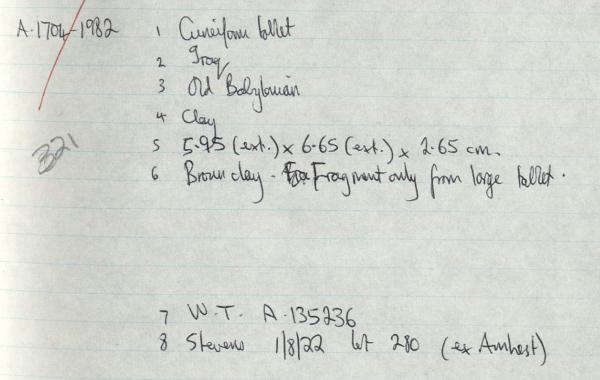 A.1704-1982 1 Cuneiform tablet
2 Iraq
3 Old Babylonian
4 Clay
321
5 5.95 (ext.) x 6.65 (ext.) x 2.65 cm.
6 Brown clay. Fragment only from large tablet.
7 W.T. A.135236
8 Stevens 1/8/22 lot 280 (ex Amherst)